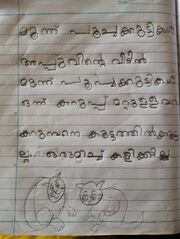 മൂന്ന് പൂച്ചക്കുട്ടികൾ
അപ്പുവിന്റെ വീട്ടിൽ
മൂന്ന് പൂച്ചക്കുട്ടികൾ
ഒന്ന് കറുപ്പ് മറ്റുള്ളവ
കറുമ്പനെ കൂട്ടത്തിൽ
ഒരുമിച്ച് കളിക്കി